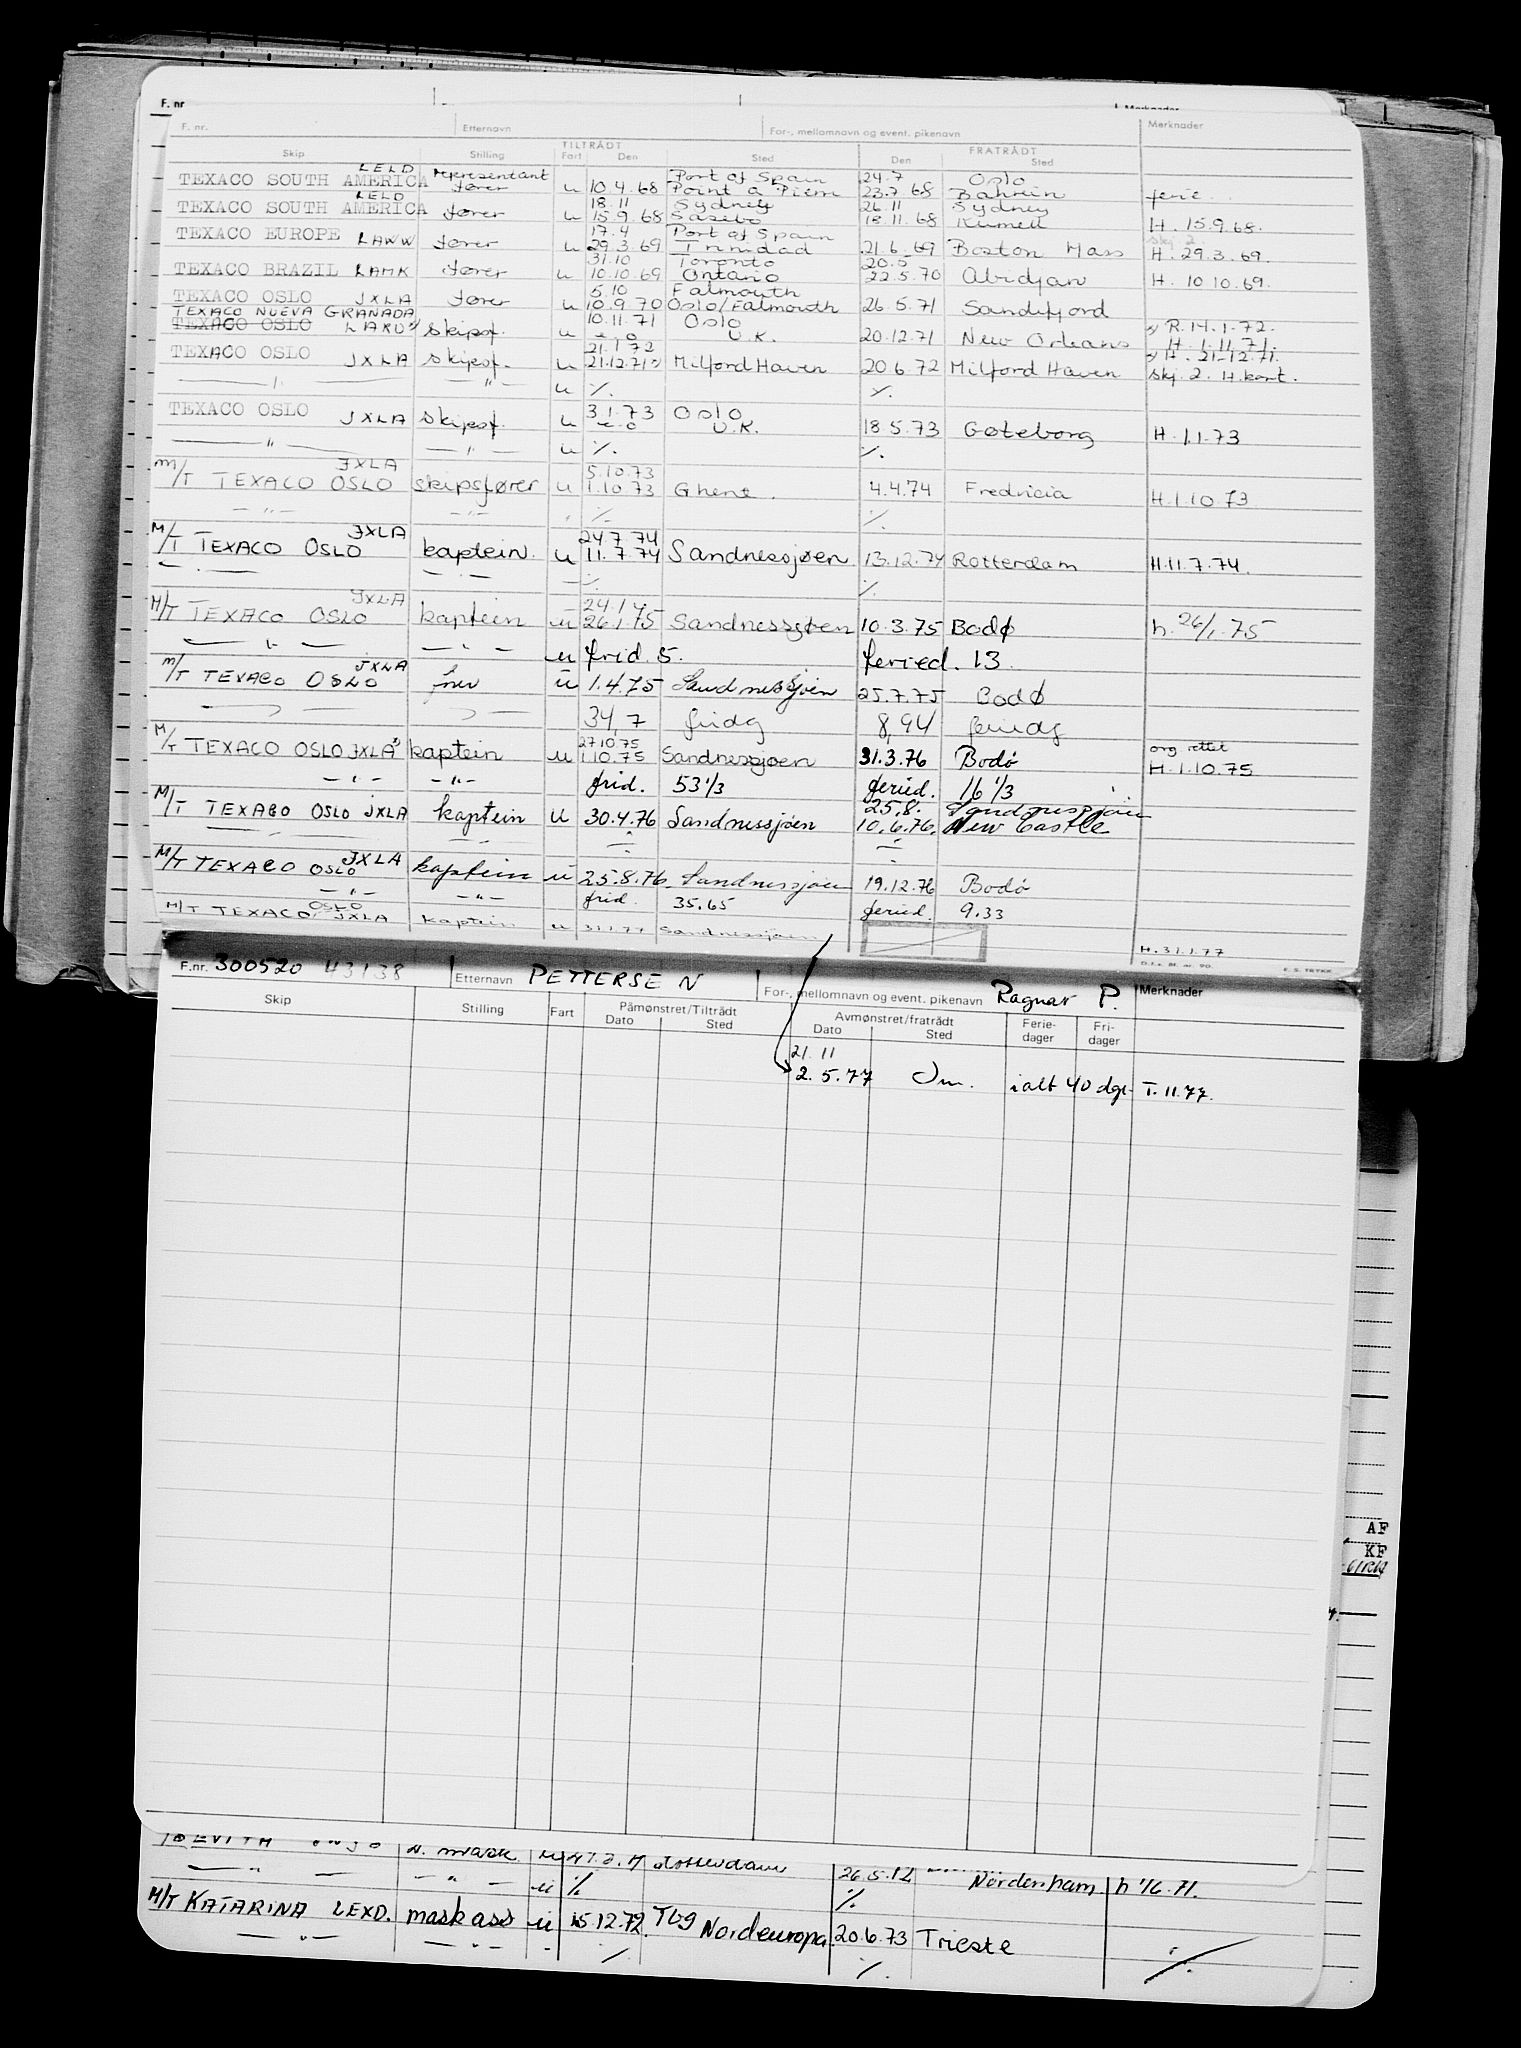 F. nr
F. nr. Etternavn For-, mellomnavn og event. pikenavn Merknader
TILTRÅDT FRATRÅDT
Skip Stilling Fart Den Sted Den Sted
LELD representant Port of Spain 24.7 Oslo
TEXACO SOUTH AMERICA fører u 10.4.68 Point a Pierre 23.7.68 Bahrein ferie
LELD 18.11 Sydney 26.11 Sydney
TEXACO SOUTH AMERICA fører u 15.9.68 Sasebo 18.11.68 H. 15.9.68.
17.4 Port of Spain skj 2
TEXACO EUROPE LAWW fører u 29.3.69 Trinidad 21.6.69 Boston Mass H. 29.3.69.
31.10 Toronto 20.5
TEXACO BRAZIL LAMK fører u 10.10.69 Ontario 22.5.70 Abidjan H. 10 10.69.
5.10 Falmouth
TEXACO OSLO JXLA fører u 10.9.70 Oslo/Falmouth 26.5.71 Sandefjord
TEXACO NUEVA GRANADA 10.11.71 Oslo x) R.14.1.72.
TEXACO OSLO LAKU skipsf. u U.K. 20.12.71 New Orleans H.1.11.71.
21.1.72 x) H. 21.12.71.
TEXACO OSLO JXLA skipsf. u 21.12.71x) Milford Haven 20.6.72 Milford Haven skj. 2. H.kort.
— " — — " — u ./. ./.
TEXACO OSLO 3.1.73 Oslo
JXLA skipsf. u U.K. 18.5.73 Gøteborg H.1.1.73
— " — — " — u ./. ./.
JXLA 5.10.73
M/T TEXACO OSLO skipsfører u 1.10.73 Ghent. 4.4.74 Fredricia H.1.10.73
— " — — " — ./. ./.
JXLA 24.7.74
M/T TEXACO OSLO kaptein. u 11.7.74 Sandnessjøen 13.12.74 Rotterdam H.11.7.74.
— " — — " — ./. ./.
JXLA 24.1
M/T TEXACO OSLO kaptein u 26.1.75 Sandnessjøen 10.3.75 Bodø h. 26/1.75
— " — — " — u frid. 5. feried. 13.
M/T TEXACO OSLO JXLA u 1.4.75 Sandnessjøen 25.7.75 Bodø
— " — — " — 34,7 fridg 8,94 feriedg
27.10.75 org. rettet
M/T TEXACO OSLO JXLA kaptein u 1.10.75 Sandnessjøen 31.3.76 Bodø H.1.10.75
— " — — " — frid. 53 1/3 feried. 16 1/3
25.8. Sandnessjøen
M/T TEXACO OSLO JXLA kaptein u 30.4.76 Sandnessjøen 10.6.76. New Castle
— " — — " —
M/T TEXACO OSLO JXLA kaptein u 25.8.76 Sandnessjøen 19.12.76 Bodø
— " — — " — frid. 35.65 feried. 9.33
M/T TEXACO OSLO JXLA kaptein u 31.1.77 Sandnessjøen H.31.1.77
E. S. TRYKK
F.nr. 300520 43138 Etternavn PETTERSEN For-, mellomnavn og event. pikenavn Ragnar P. Merknader
Skip Stilling Fart Påmønstret/Tiltrådt Avmønstret/fratrådt Ferie- Fri-
Dato Sted Dato Sted dager dager
21.11
2.5.77 ialt 40 dgr T.11.77.
AF
KF
26.5.72 Nordenham h 1/6.71.
— " — — " — u ./. ./.
M/T KATARINA LEXD. maskass u 15.12.72. TLG Nordeuropa 20.6.73 Trieste ./.
— " — — " — ./. ./.